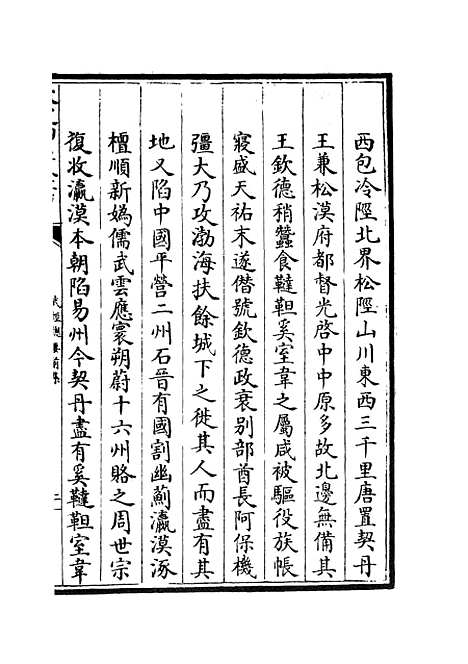 西包冷陘北界松陘山川東西三千里唐置契丹
王兼松漠府都督光啓中中原多故北邊無備其
王欽德稍蠶食韃靼奚室韋之屬咸被驅役族帳
寖盛天祐末遂僭號欽德政衰别部酋長阿保機
彊大乃攻渤海扶餘城下之徙其人而盡有其
地又陷中國平營二州石晉有國割幽薊瀛漠涿
檀順新媯儒武雲應寰朔蔚十六州賂之周世宗
復收瀛漠本朝陷易州今契丹盡有奚韃靼室韋
武經總要前集